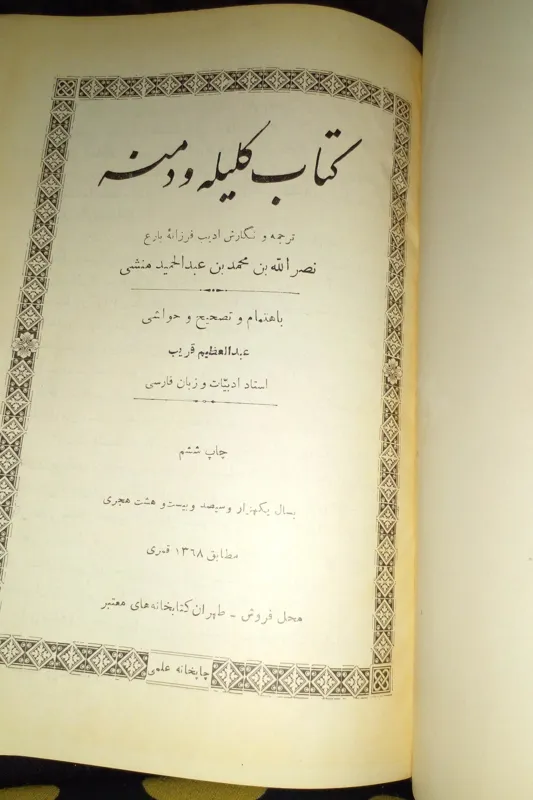 کتاب کلیله و دمنه
ترجمه و نگارش ادیب فرزانهٔ بارع
نصرالله بن محمد بن عبدالحمید منشی
باهتمام و تصحیح و حواشی
عبدالعظیم قریب
استاد ادبیّات و زبان فارسی
چاپ ششم
بسال یکهزار و سیصد و بیست و هشت هجری
مطابق ۱۳۶۸ قمری
محل فروش - طهران کتابخانه‌های معتبر
چاپخانه علمی